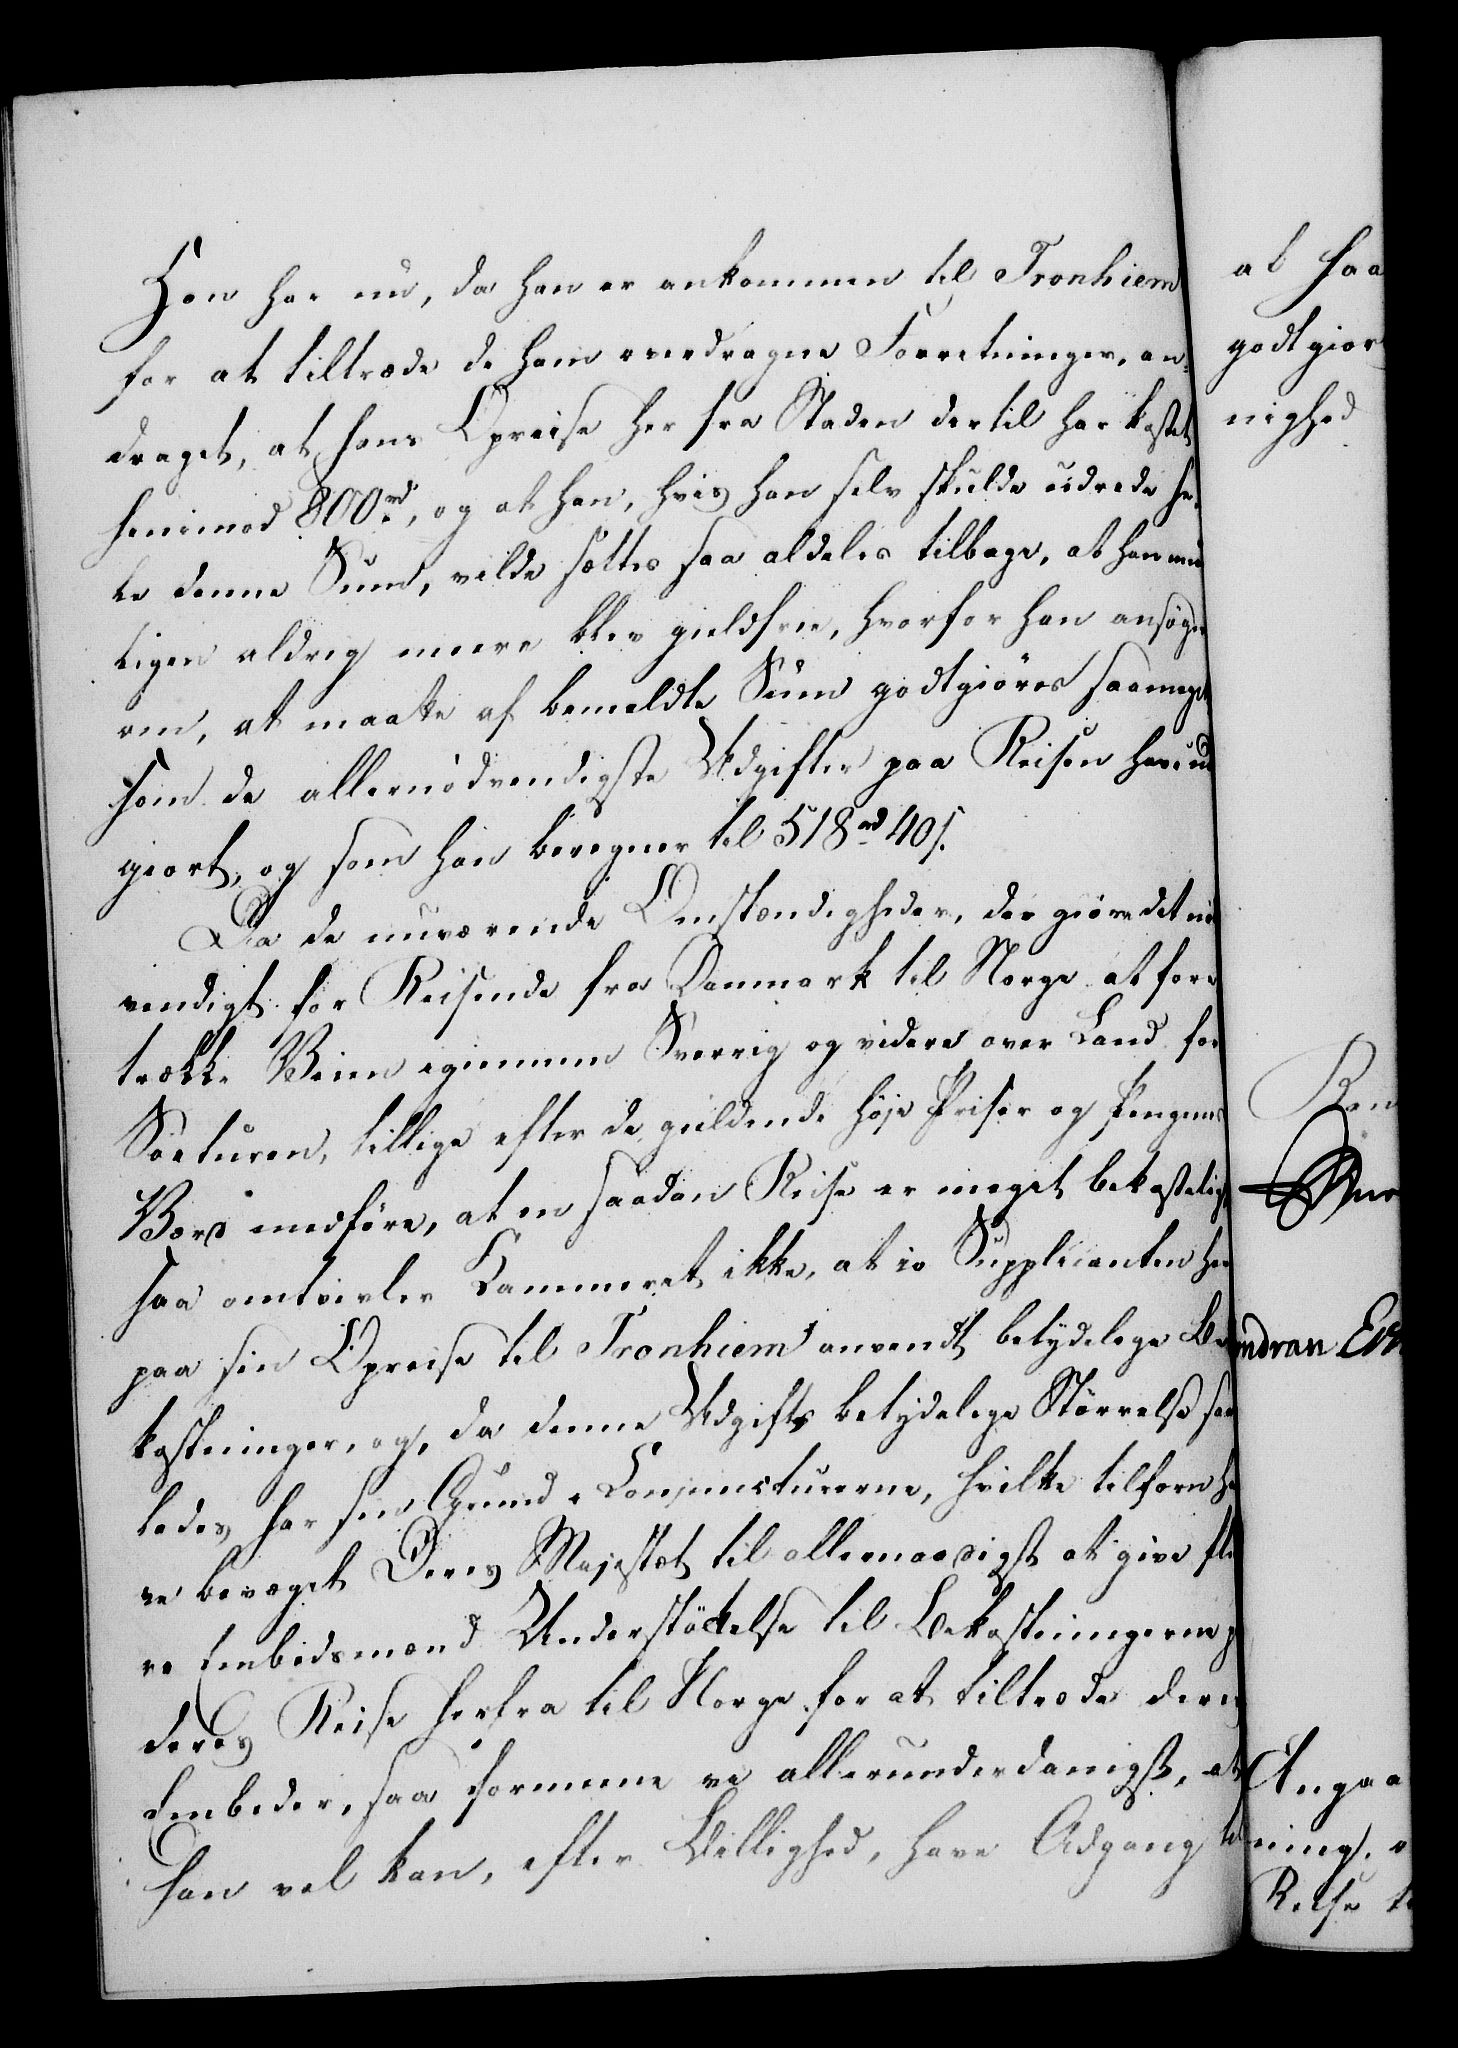 Han har nu, da han er ankommen til Tronhiem
for at tiltræde de ham overdragne Forretninger, an¬
draget, at hans Opreise her fra Staden dertil har kostet
henimod 800rd, og at han, hvis han selv skulde udrede he¬
le denne Sum, vilde sættes saa aldeles tilbage, at han
ligen aldrig meere blev gieldfrie, hvorfor han ansøger
om, at maatte af bemeldte Sum godtgiøres saameget
som de allernødvendigste Udgifter paa Reisen have ud
giort, og som han beregner til 518rd 40s.
Da de nuværende Omstændigheder, der giøre det nød
vendigt for Reisende fra Danmark til Norge at fore
trække Veien igiennem Sverrig og videre over Land for
Søeturen, tillige efter de gieldende høje Priser og Pengenes
Værd medføre, at en saadan Reise er meget bekostelig,
saa omtvivler Kammeret ikke, at jo Supplicanten har
paa sin Opreise til Tronhiem anvendt betydelige Be
kostninger, og, da denne Udgifts betydelige Størrelse saa
ledes har sin Grund i Conjuncturerne, hvilke tilforn ha
ve bevæget Deres Majestæt til allernaadigst at give fle
re Embedsmænd Understøttelse til Bekostningerne p
deres Reise herfra til Norge for at tiltræde deres
Embeder, saa formene vi allerunderdanigst, at
han vel kan, efter Billighed, have Adgang til
at saa
godtgiør
nighed
Ren
indran
Angaa
ning,
Reise